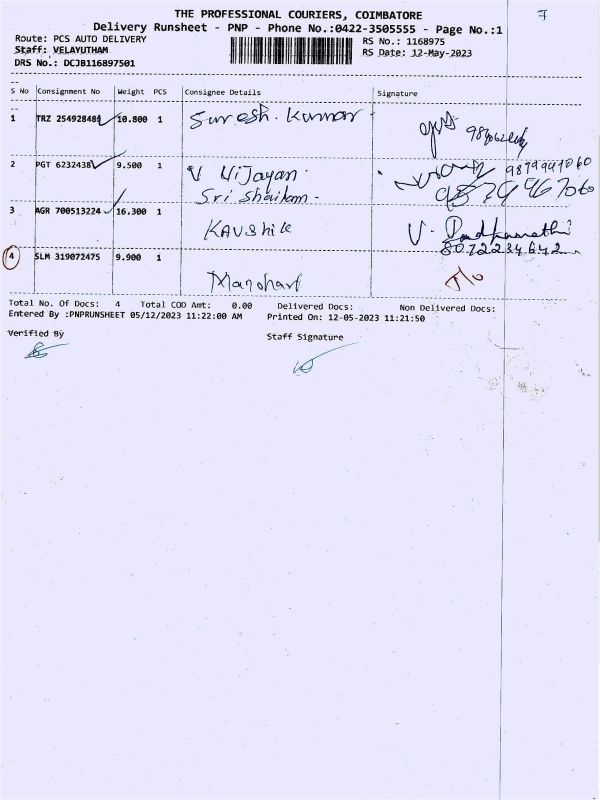 THE PROFESSIONAL COURIERS, COIMBATORE
7
Delivery Runsheet - PNP - Phone No.:0422-3505555 - Page No.:1
Route: PCS AUTO DELIVERY
RS No.: 1168975
Staff: VELAYUTHAM
RS Date: 12-May-2023
DRS No.: DCJB116897501
S No Consignment No Weight PCS Consignee Details Signature
1 TRZ 254928481 10.800 1 Suresh. Kumar
2 PGT 6232438 9.500 1 V Vijayan
Sri Shailam.
3 AGR 700513224 16.300 1 KAUShik V.
8072234642
4 SLM 319072475 9.900 1 Manohari
Total No. Of Docs: 4 Total COD Amt: 0.00 Delivered Docs: Non Delivered Docs:
Entered By :PNPRUNSHEET 05/12/2023 11:22:00 AM Printed On: 12-05-2023 11:21:50
Verified By
Staff Signature